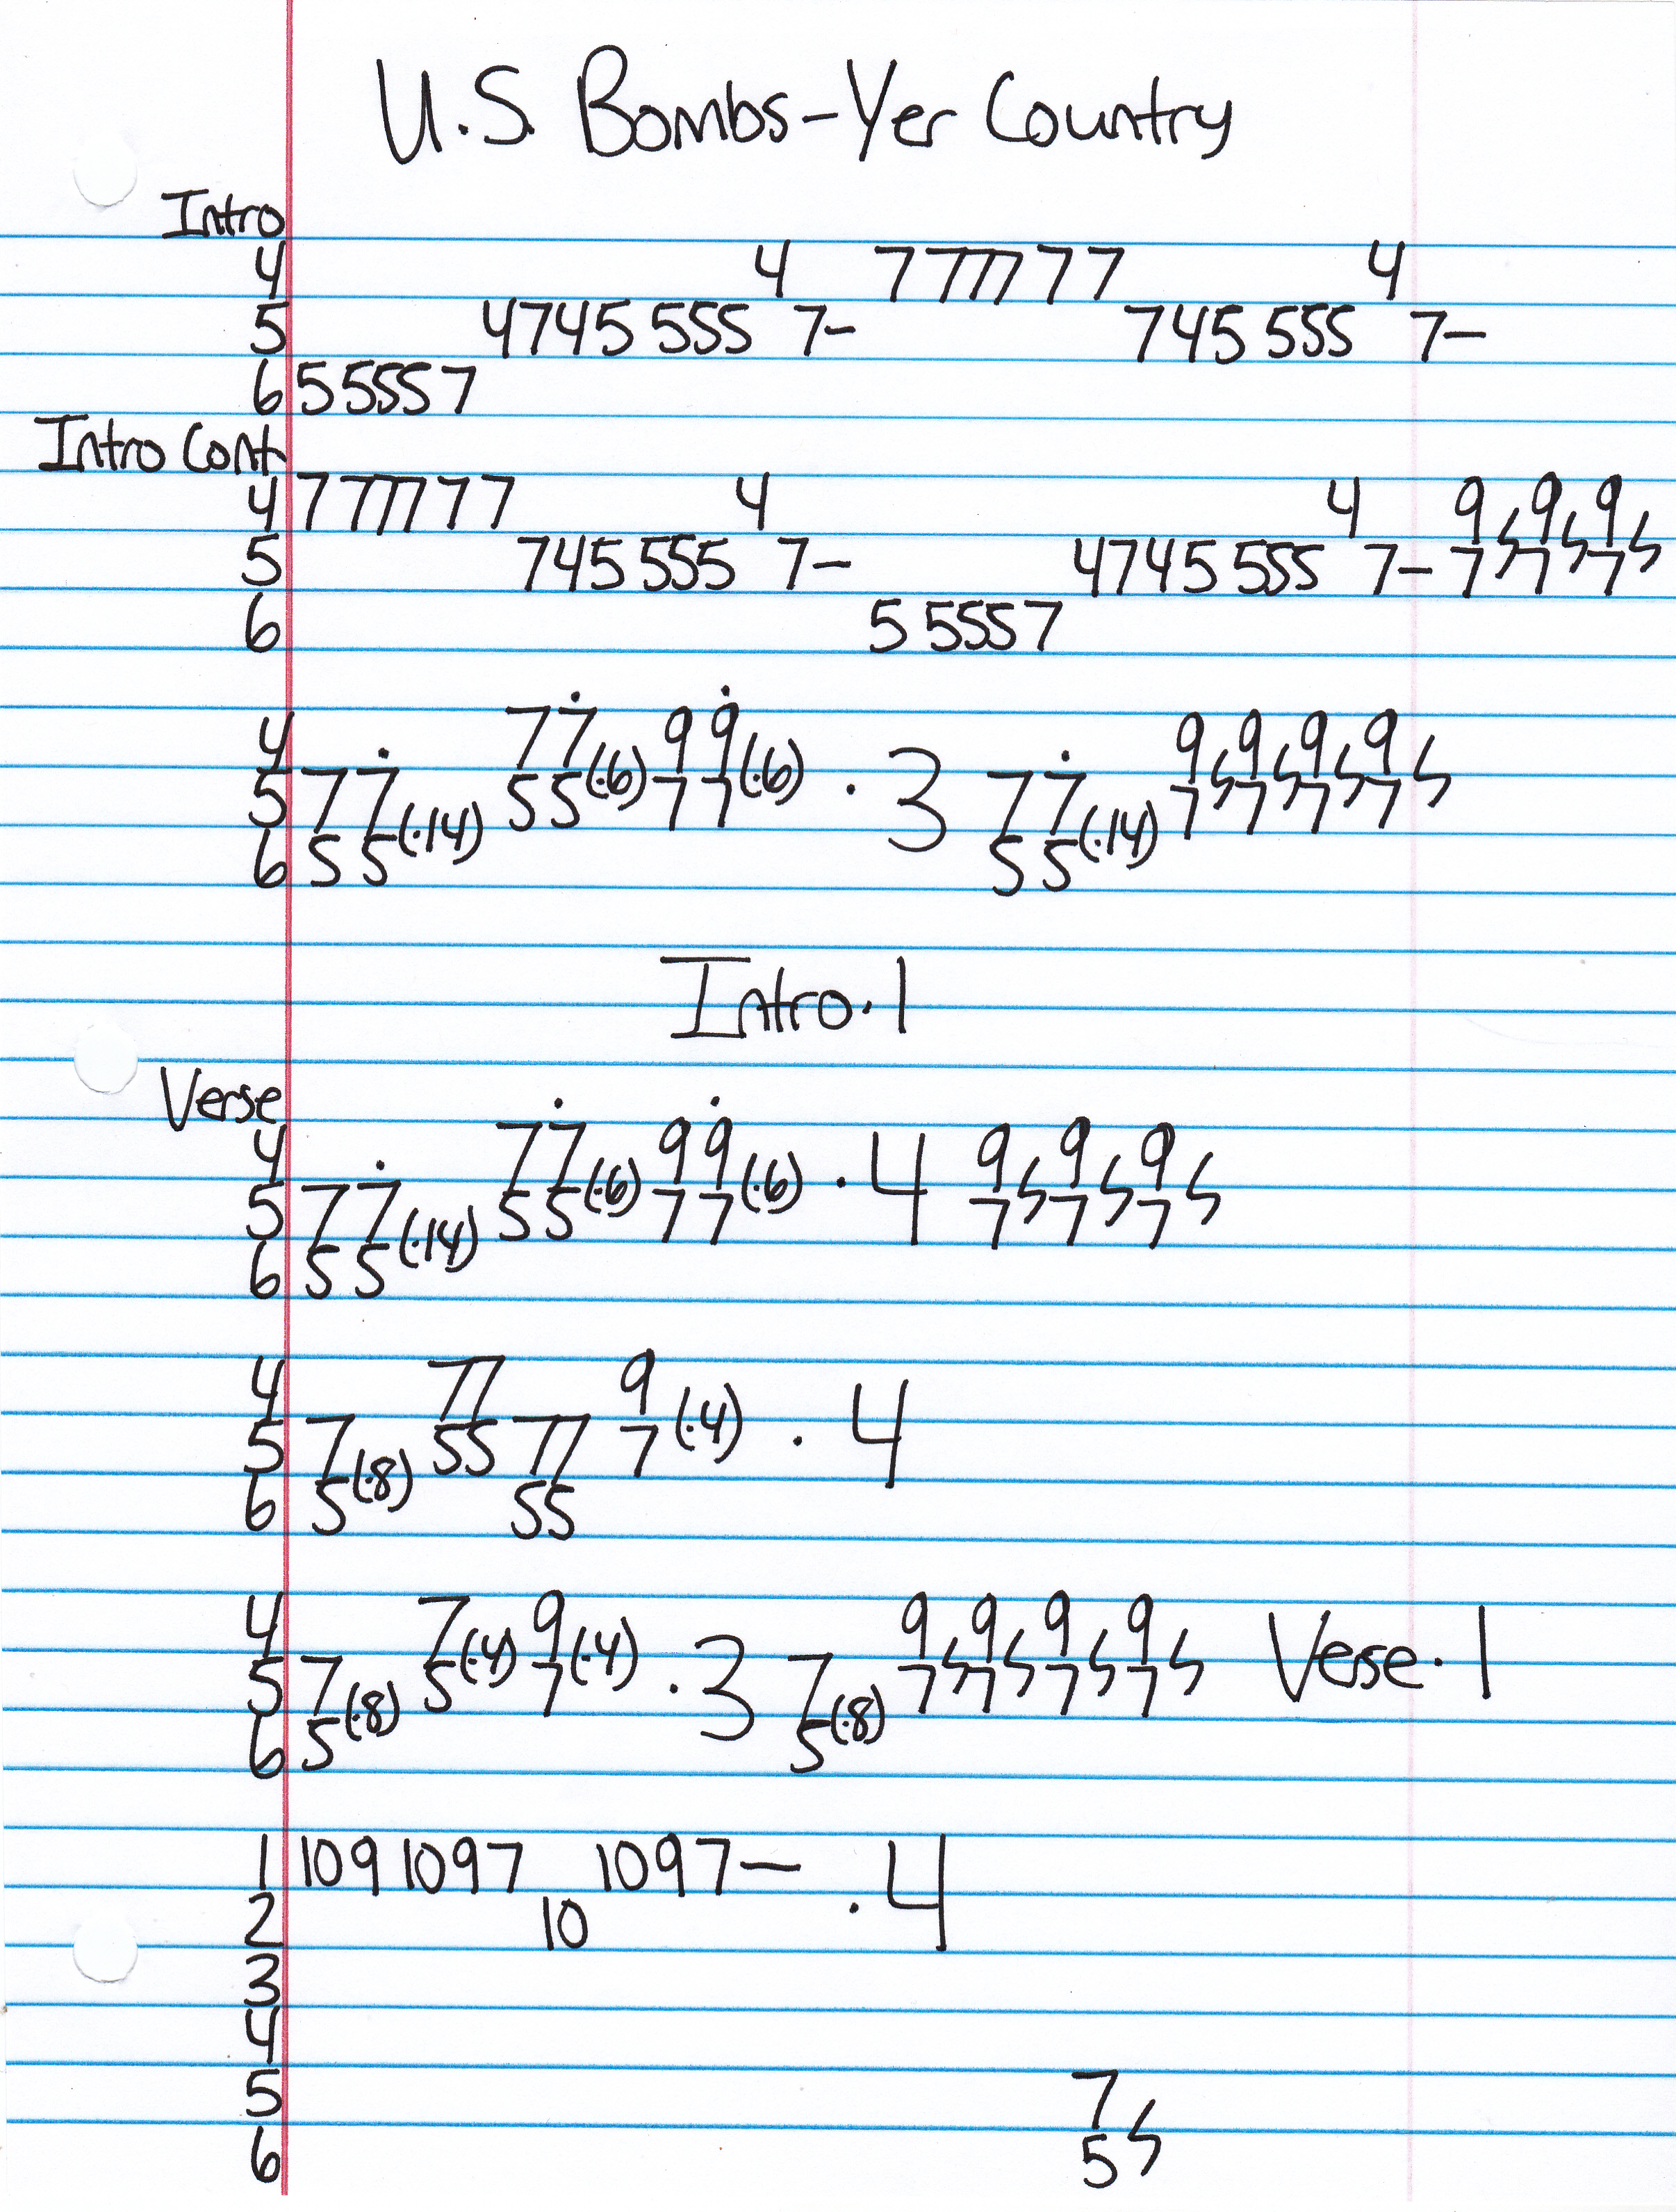 U.S. Bombs-Yer Country
Intro
4 4 7 7777 7 7 4
5 4745 555 7- 745 555 7-
6 5 5557
Intro Cont
4 7 7777 7 7 4 4 9 9 9
5 745 555 7- 4745 555 7- 7 7 7
6 5 5557
4 7 7 (·6) 9 9 (·6) 9 9 9 9
5 7 7 (·14) 5 5 7 7 · 3 7 7 (·14) 7 7 7 7
6 5 5 5 5
Intro · 1
Verse
4 7 7 (·6) 9 9 (·6) 9 9 9
5 7 7 (·14) 5 5 7 7 · 4 7 7 7
6 5 5
4 77 9 (·4)
5 7 (·8) 55 77 7 · 4
6 5 55
4 7 (·4) 9 (·4) 9 9 9 9 Verse · 1
5 7 (·8) 5 7 · 3 7 (·8) 7 7 7 7
6 5 5
1 109 1097 1097- · 4
2 10
3
4
5 7
6 5